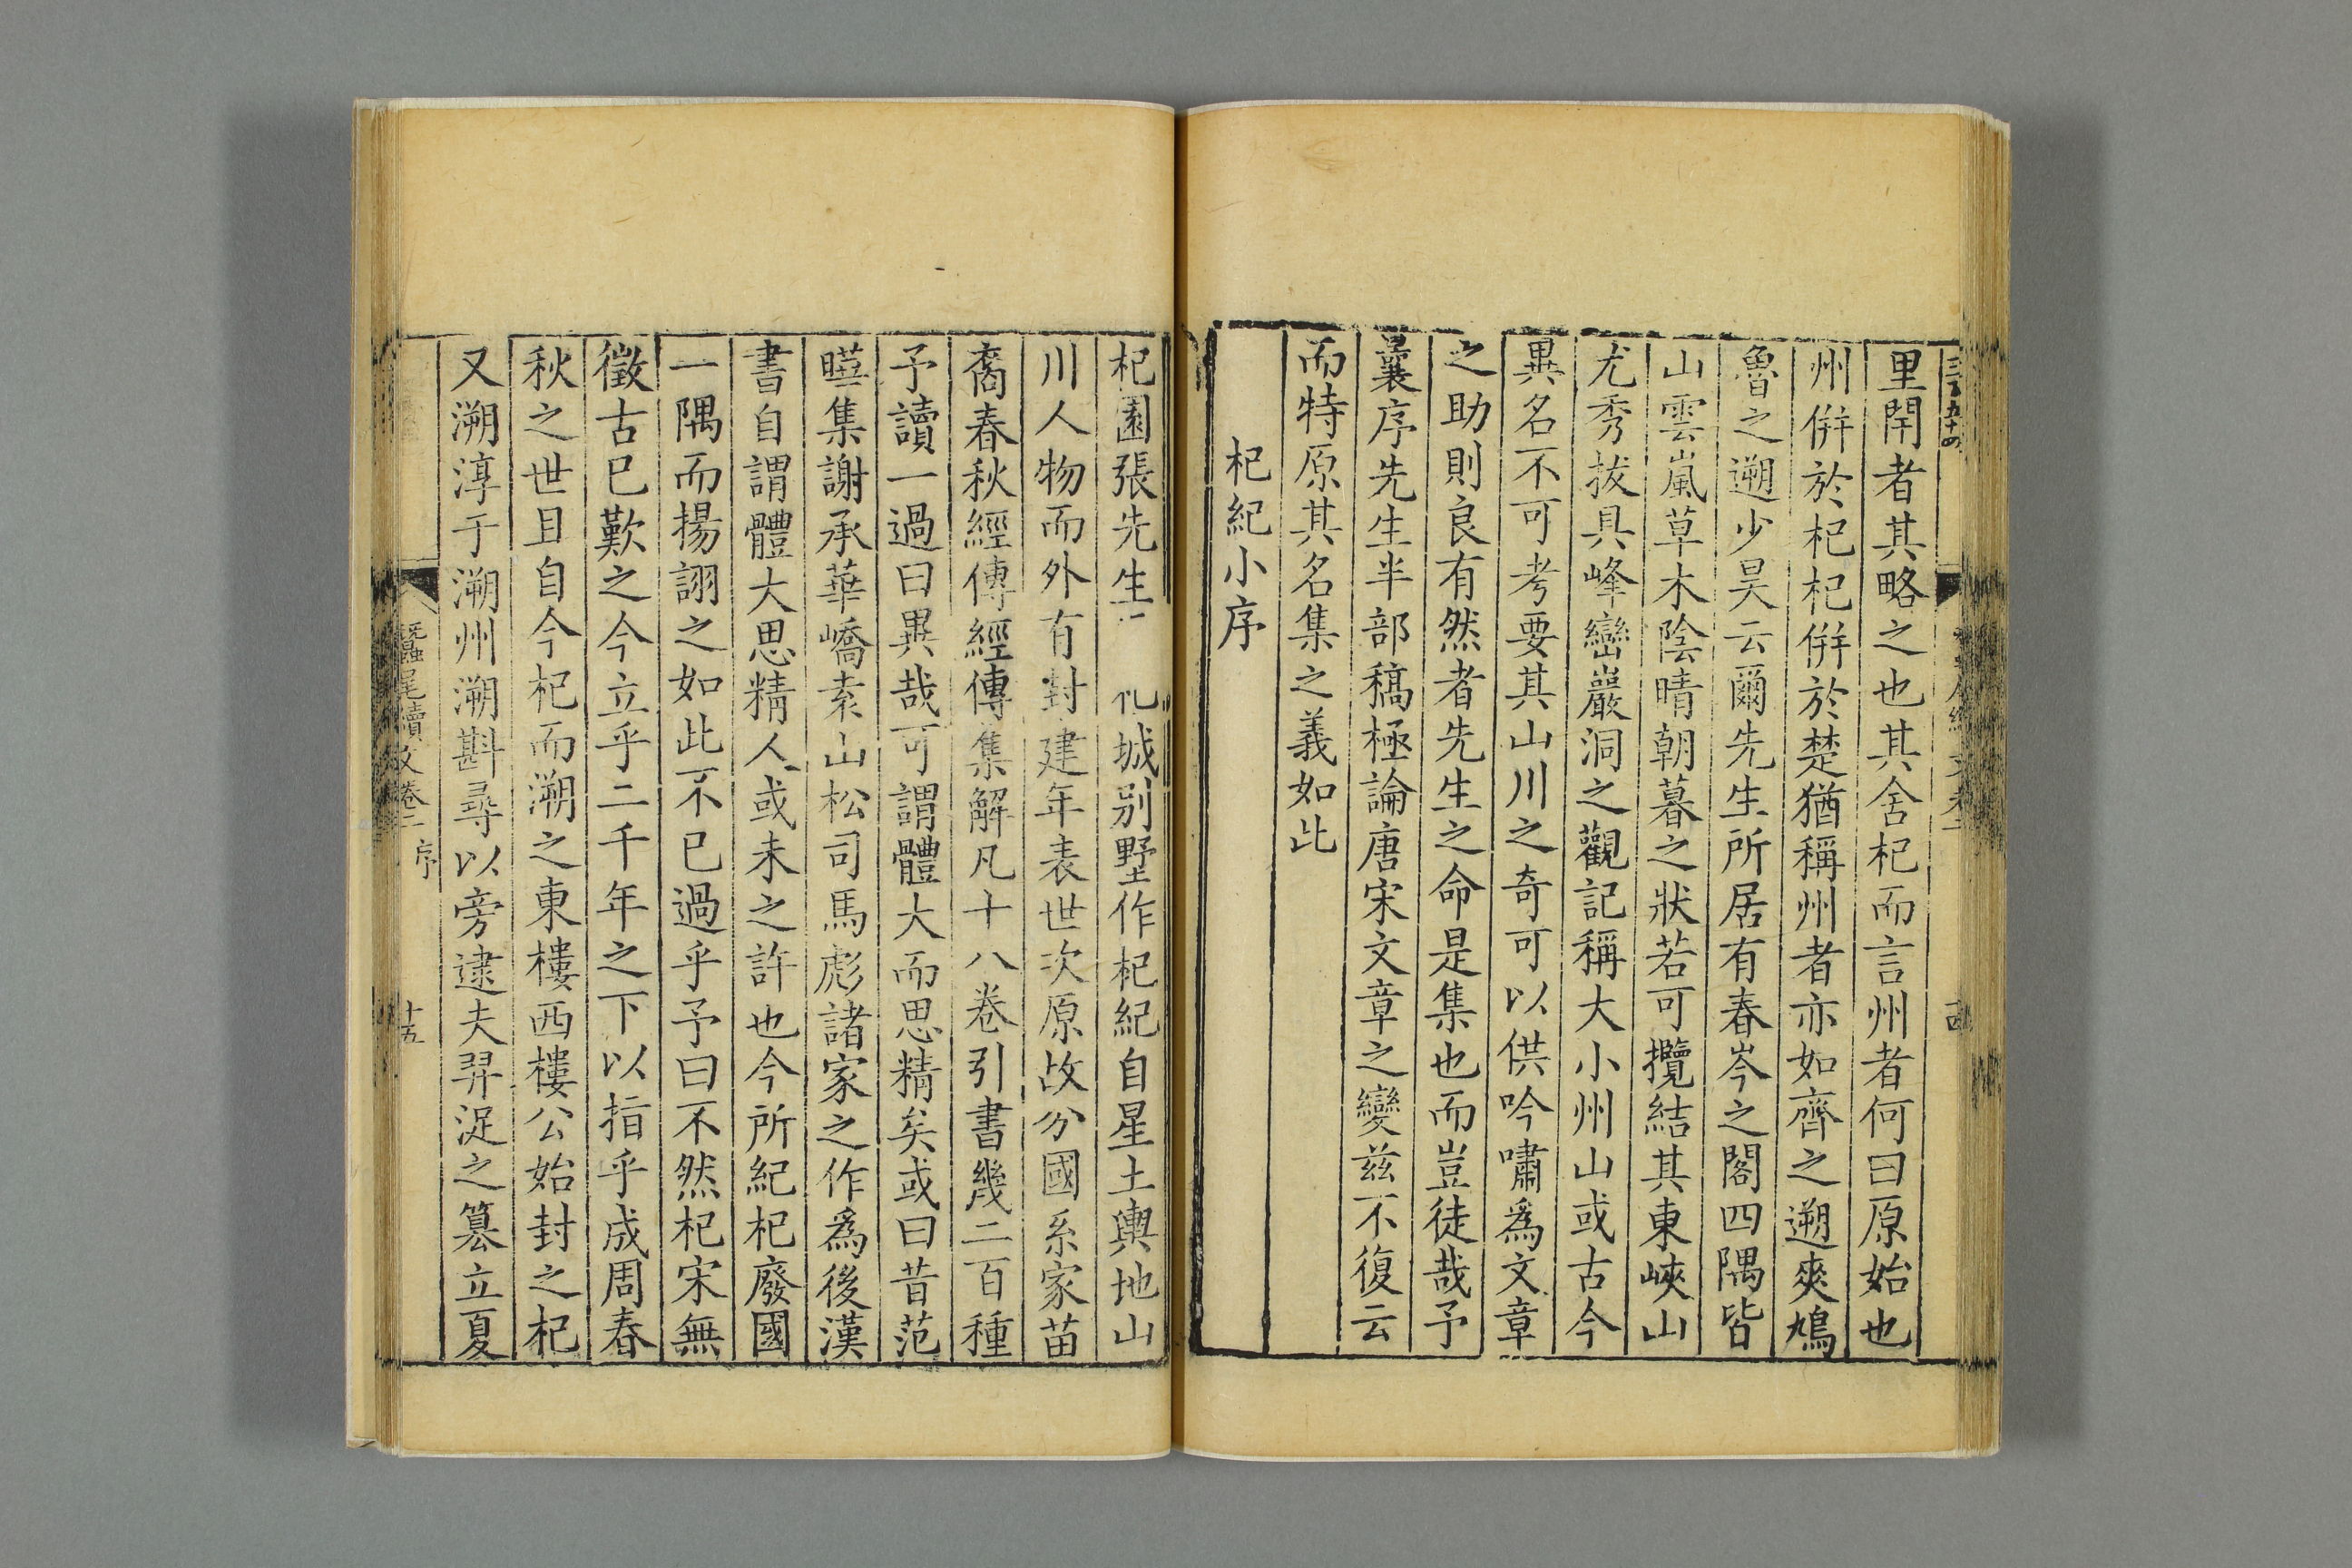 里閈者其略之也其舍杞而言州者何曰原始也
州併於杞杞併於楚猶稱州者亦如齊之遡爽鳩
魯之遡少昊云爾先生所居有春岑之閣四隅皆
山雲嵐草木陰晴朝暮之狀若可攬結其東峽山
尤秀拔具峰巒巖洞之觀記稱大小州山或古今
異名不可考要其山川之奇可以供吟嘯爲文章
之助則良有然者先生之命是集也而豈徒哉予
曩序先生半部稿極論唐宋文章之變兹不復云
而特原其名集之義如此
杞紀小序
杞園張先生 化城别墅作杞紀自星土輿地山
川人物而外有封建年表世次原故分國系家苗
裔春秋經傳經傳集解凡十八卷引書幾二百種
予讀一過曰異哉可謂體大而思精矣或曰昔范
曄集謝承華嶠袁山松司馬彪諸家之作爲後漢
書自謂體大思精人或未之許也今所紀杞廢國
一隅而揚詡之如此不已過乎予曰不然杞宋無
徵古已歎之今立乎二千年之下以指乎成周春
秋之世且自今杞而溯之東樓西樓公始封之杞
又溯淳于溯州溯斟尋以旁逮夫羿浞之簒立夏
蠶尾續文卷二 序 十五